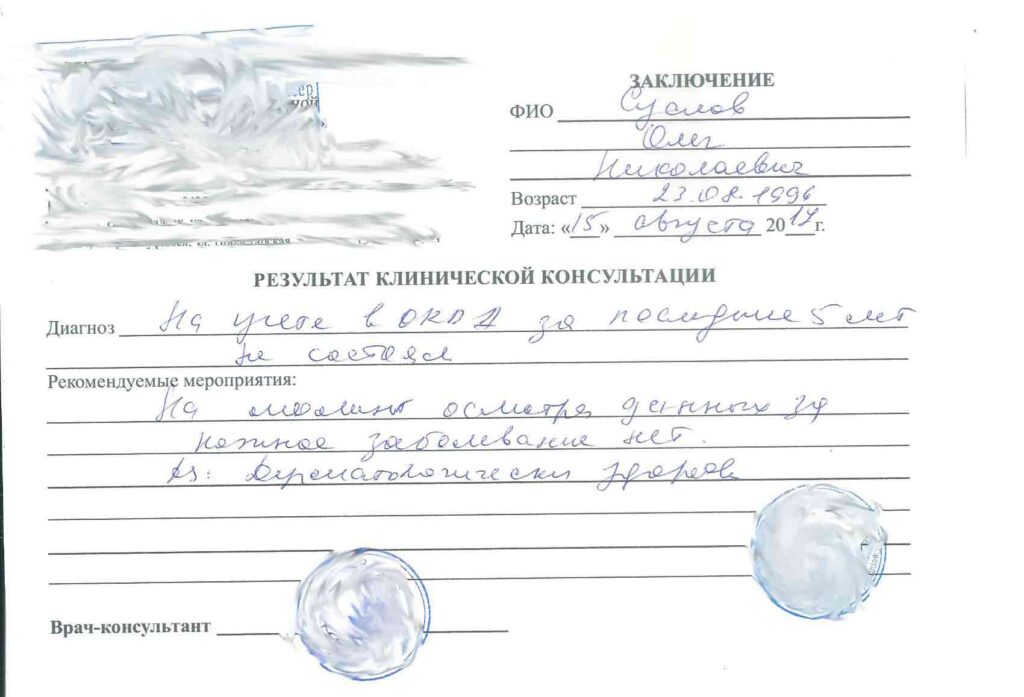 ЗАКЛЮЧЕНИЕ
ФИО Суслов
Олег
Николаевич
Возраст 23.08.1996
Дата: «15» августа 2017г.
РЕЗУЛЬТАТ КЛИНИЧЕСКОЙ КОНСУЛЬТАЦИИ
Диагноз На учете в ОКВД за последние 5 лет
не состоял
Рекомендуемые мероприятия:
На момент осмотра данных за
кожное заболевание нет.
Дерматологически здоров
Врач-консультант